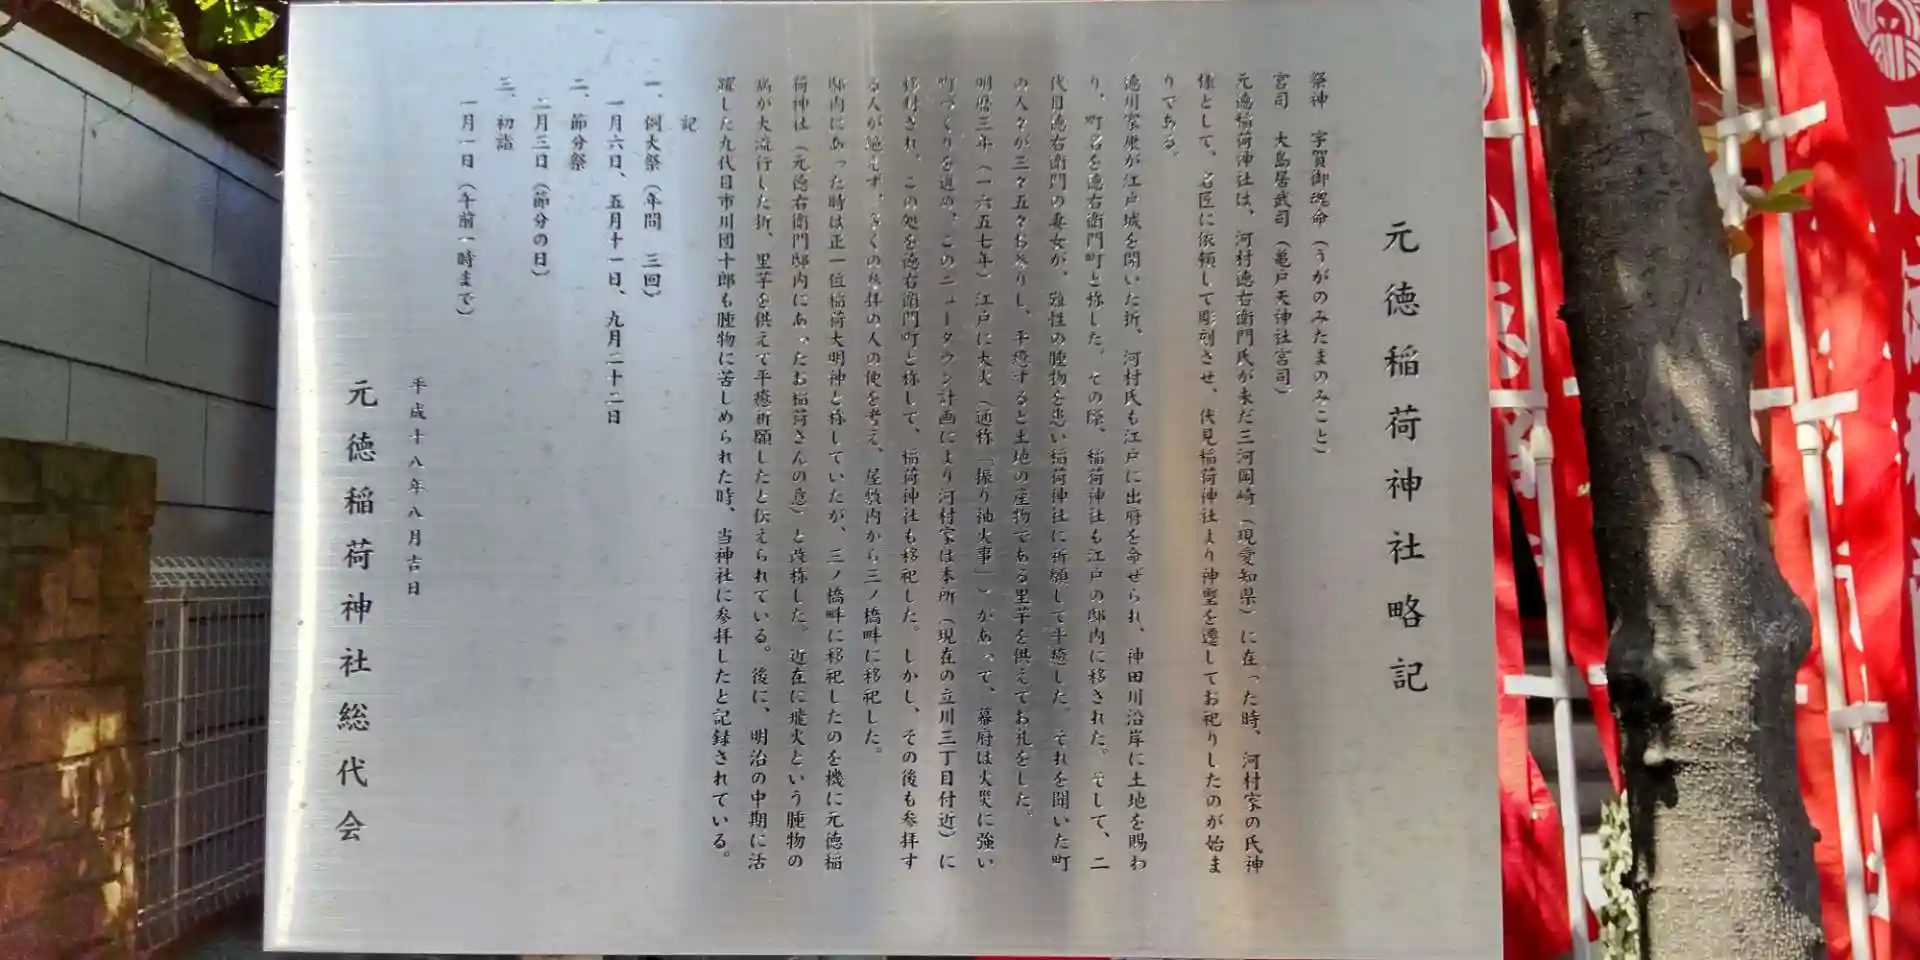 元徳稲荷神社略記
祭神　宇賀御魂命（うがのみたまのみこと）
宮司　大島居武司（亀戸天神社宮司）
元徳稲荷神社は、河村徳右衛門氏が未だ三河岡崎（現愛知県）に在った時、河村家の氏神
様として、名匠に依頼して彫刻させ、伏見稲荷神社より神璽を遷してお祀りしたのが始ま
りである。
徳川家康が江戸城を開いた折、河村氏も江戸に出府を命ぜられ、神田川沿岸に土地を賜わ
り、町名を徳右衛門町と称した。その際、稲荷神社も江戸の邸内に移された。そして、二
代目徳右衛門の妻女が、難性の腫物を患い稲荷神社に祈願して平癒した。それを聞いた町
の人々が三々五々お参りし、平癒すると土地の産物である里芋を供えてお礼をした。
明暦三年（一六五七年）江戸に大火（通称「振り袖火事」）があって、幕府は火災に強い
町づくりを進め、このニュータウン計画により河村家は本所（現在の立川三丁目付近）に
移封され、この処を徳右衛門町と称して、稲荷神社も移祀した。しかし、その後も参拝す
る人が絶えず、多くの参拝の人の便を考え、屋敷内から三ノ橋畔に移祀した。
邸内にあった時は正一位稲荷大明神と称していたが、三ノ橋畔に移祀したのを機に元徳稲
荷神は（元徳右衛門邸内にあったお稲荷さんの意）と改称した。近在に飛火という腫物の
病が大流行した折、里芋を供えて平癒祈願したと伝えられている。後に、明治の中期に活
躍した九代目市川団十郎も腫物に苦しめられた時、当神社に参拝したと記録されている。
記
一、例大祭（年間　三回）
一月六日、五月十一日、九月二十二日
二、節分祭
二月三日（節分の日）
三、初詣
一月一日（午前一時まで）
平成十八年八月吉日
元徳稲荷神社総代会